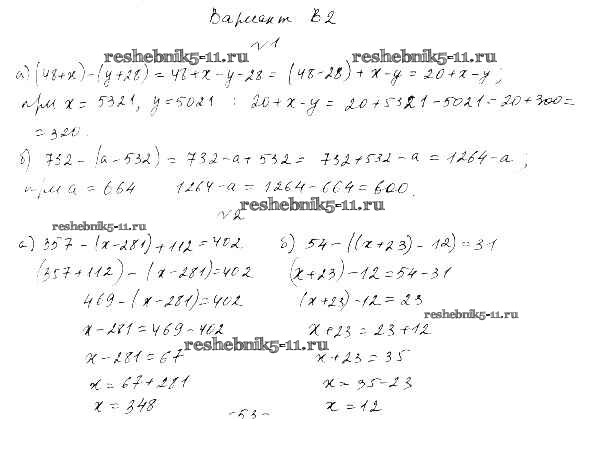 Вариант В2
№1
reshebnik5-11.ru reshebnik5-11.ru
а) (48+x)-(y+28)=48+x-y-28=(48-28)+x-y=20+x-y;
при x=5321, y=5021 : 20+x-y=20+5321-5021=20+300=
=320.
б) 732-(a-532)=732-a+532=732+532-a=1264-a;
при a=664 1264-a=1264-664=600.
reshebnik5-11.ru
№2
reshebnik5-11.ru
а) 357-(x-281)+112=402 б) 54-((x+23)-12)=31
(357+112)-(x-281)=402 (x+23)-12=54-31
469-(x-281)=402 (x+23)-12=23
reshebnik5-11.ru
x-281=469-402 x+23=23+12
reshebnik5-11.ru
x-281=67 x+23=35
x=67+281 x=35-23
x=348 x=12
-53-